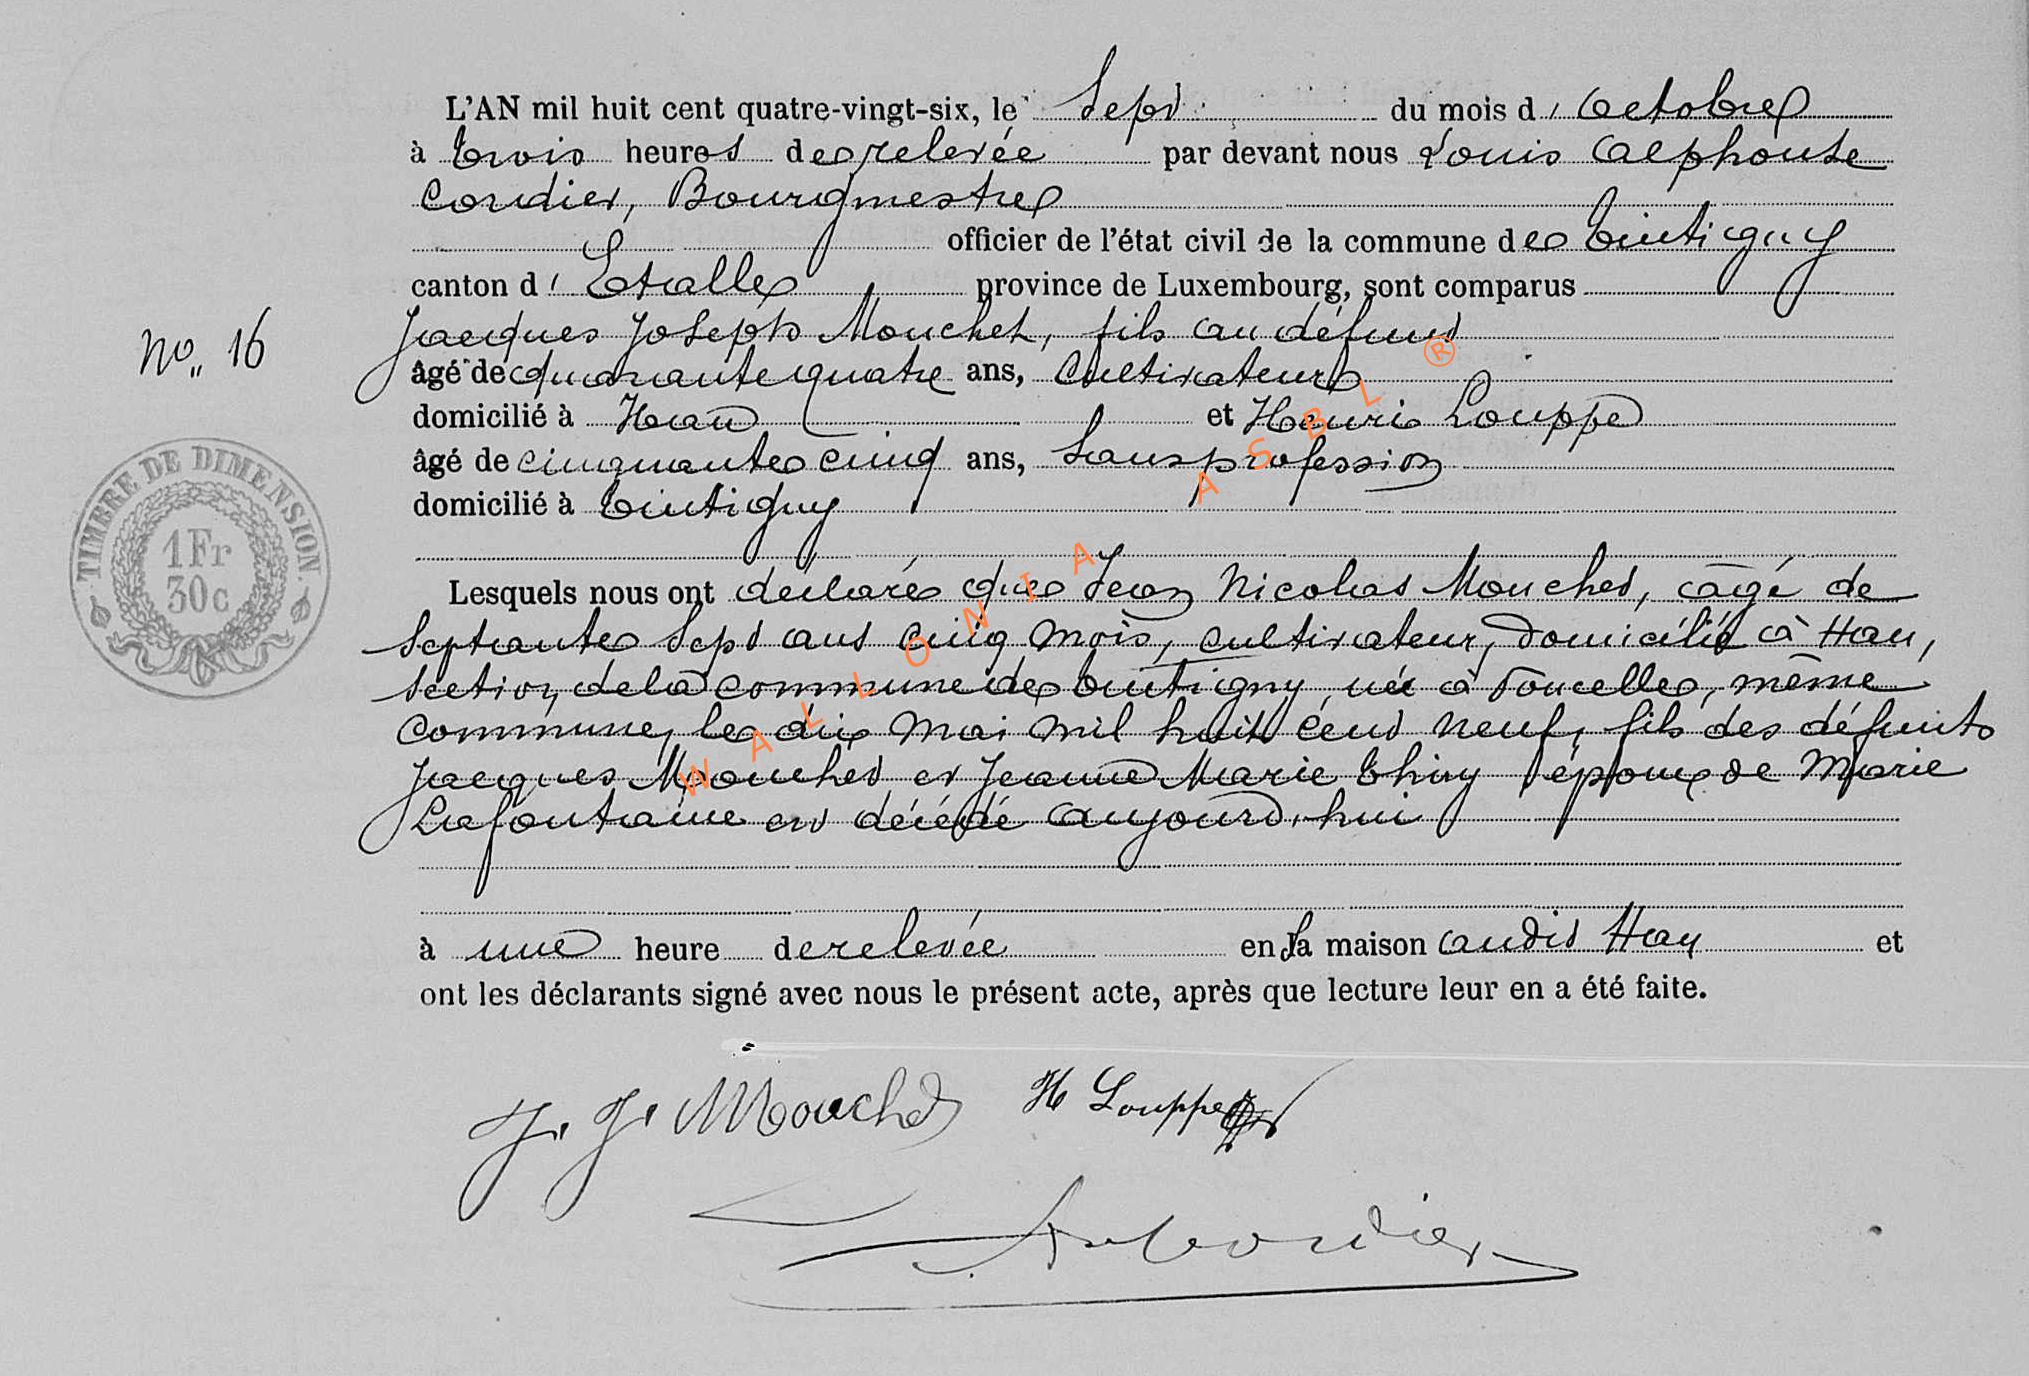 L'AN mil huit cent quatre-vingt-six, le Sept du mois d'Octobre
à trois heures de relevée par devant nous Louis Alphonse
Cordier, Bourgmestre
officier de l'état civil de la commune de Tintigny
canton d'Etalle province de Luxembourg, sont comparus
Jacques Joseph Mouchet, fils au défunt
No 16
âgé de quarante quatre ans, Cultivateur
domicilié à Han et Henri Louppe
âgé de cinquante cinq ans, Sans profession
domicilié à Tintigny
TIMBRE DE DIMENSION.
1Fr
30c
Lesquels nous ont déclaré que Jean Nicolas Mouchet, âgé de
Septante Sept ans cinq mois, cultivateur, domicilié à Han,
section de la commune de Tintigny né à Poncelle, même
commune, le dix Mai mil huit cent neuf, fils des défunts
Jacques Mouchet et Jeanne Marie Thiry époux de Marie
Lafontaine est décédé aujourd'hui
à une heure de relevée en sa maison audit Han et
ont les déclarants signé avec nous le présent acte, après que lecture leur en a été faite.
J. J. Mouchet H Louppe
Cordier
WALLONIA ASBL ®